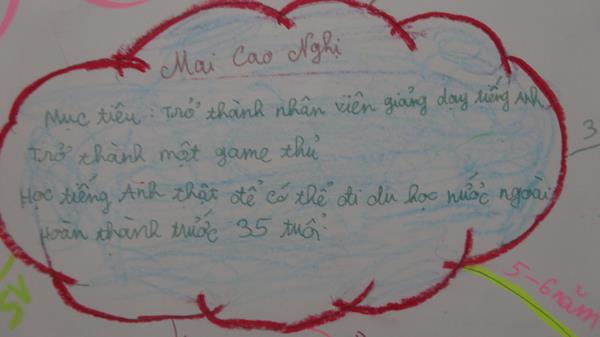 Mai Cao Nghị
Mục tiêu : Trở thành nhân viên giảng dạy tiếng Anh
Trở thành một game thủ
Học tiếng Anh thật để có thể đi du học nước ngoài
Hoàn thành trước 35 tuổi
3
5-6 năm